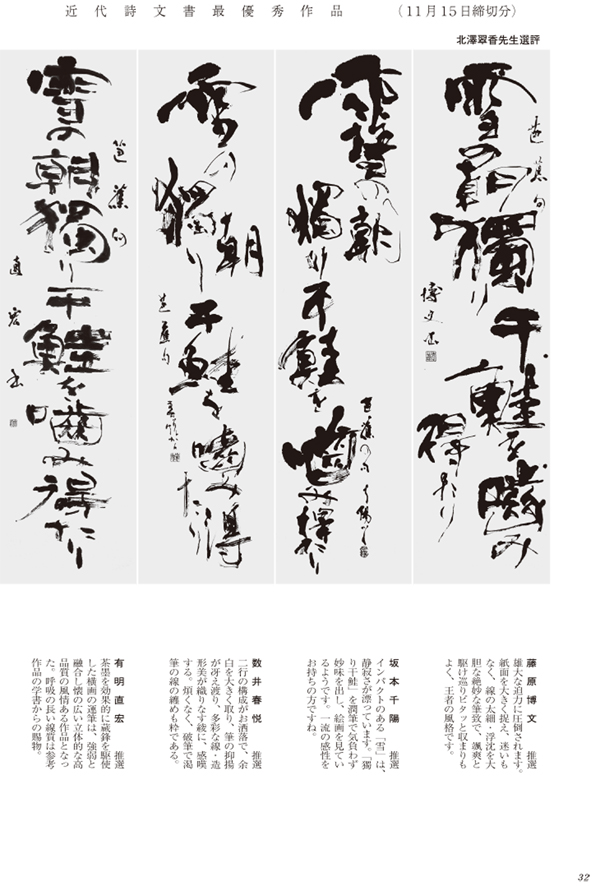 近代詩文書最優秀作品　（11月15日締切分）
北澤翠香先生選評
芭蕉句
雪の朝獨り
干鮭を噛み
得たり
博文書
雪の朝
獨り
干鮭を
噛み得たり
芭蕉の句
雪の朝
獨り
干鮭を
噛み得
たり
芭蕉句
芭蕉句
雪の朝獨り干鮭を噛み得たり
直宏書
藤原博文　推選
雄大な迫力に圧倒されます。
紙面を大きく捉え、迷いも
なく、線の太細・浮沈を大
胆な絶妙な筆致で、颯爽と
駆け巡りピタッと収まりも
よく、王者の風格です。
坂本千陽　推選
インパクトのある「雪」は、
静寂さが漂っています。「獨
り干鮭」を潤筆で気負わず
妙味を出し、絵画を見てい
るようです。一流の感性を
お持ちの方ですね。
数井春悦　推選
二行の構成がお洒落で、余
白を大きく取り、筆の抑揚
が冴え渡り、多彩な線・造
形美が織りなす綾に、感嘆
する。煩くなく、破筆で渇
筆の線の纏めも粋である。
有明直宏　推選
茶墨を効果的に蔵鋒を駆使
した横画の運筆は、強弱と
融合し懐の広い立体的な高
品質の風情ある作品となっ
た。呼吸の長い線質は参考
作品の学書からの賜物。
32